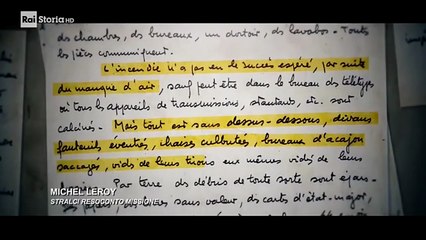 Rai Storia HD
des chambres, des bureaux, un dortoir, des lavabos. Toutes
les pièces communiquent.
L'incendie n'a pas eu le succès espéré, par suite
du manque d'air, sauf peut être dans le bureau des télétypes
où tous les appareils de transmissions, standards, etc. sont
calcinés. Mais tout est sans dessus-dessous, divans
fauteuils éventrés, chaises culbutées, bureaux d'acajou
saccagés, vidés de leurs tiroirs eux mêmes vidés de leurs
Par terre des débris de toute sorte sont épars
sans valeur, des cartes d'état-major,
MICHEL LEROY
STRALCI RESOCONTO MISSIONE